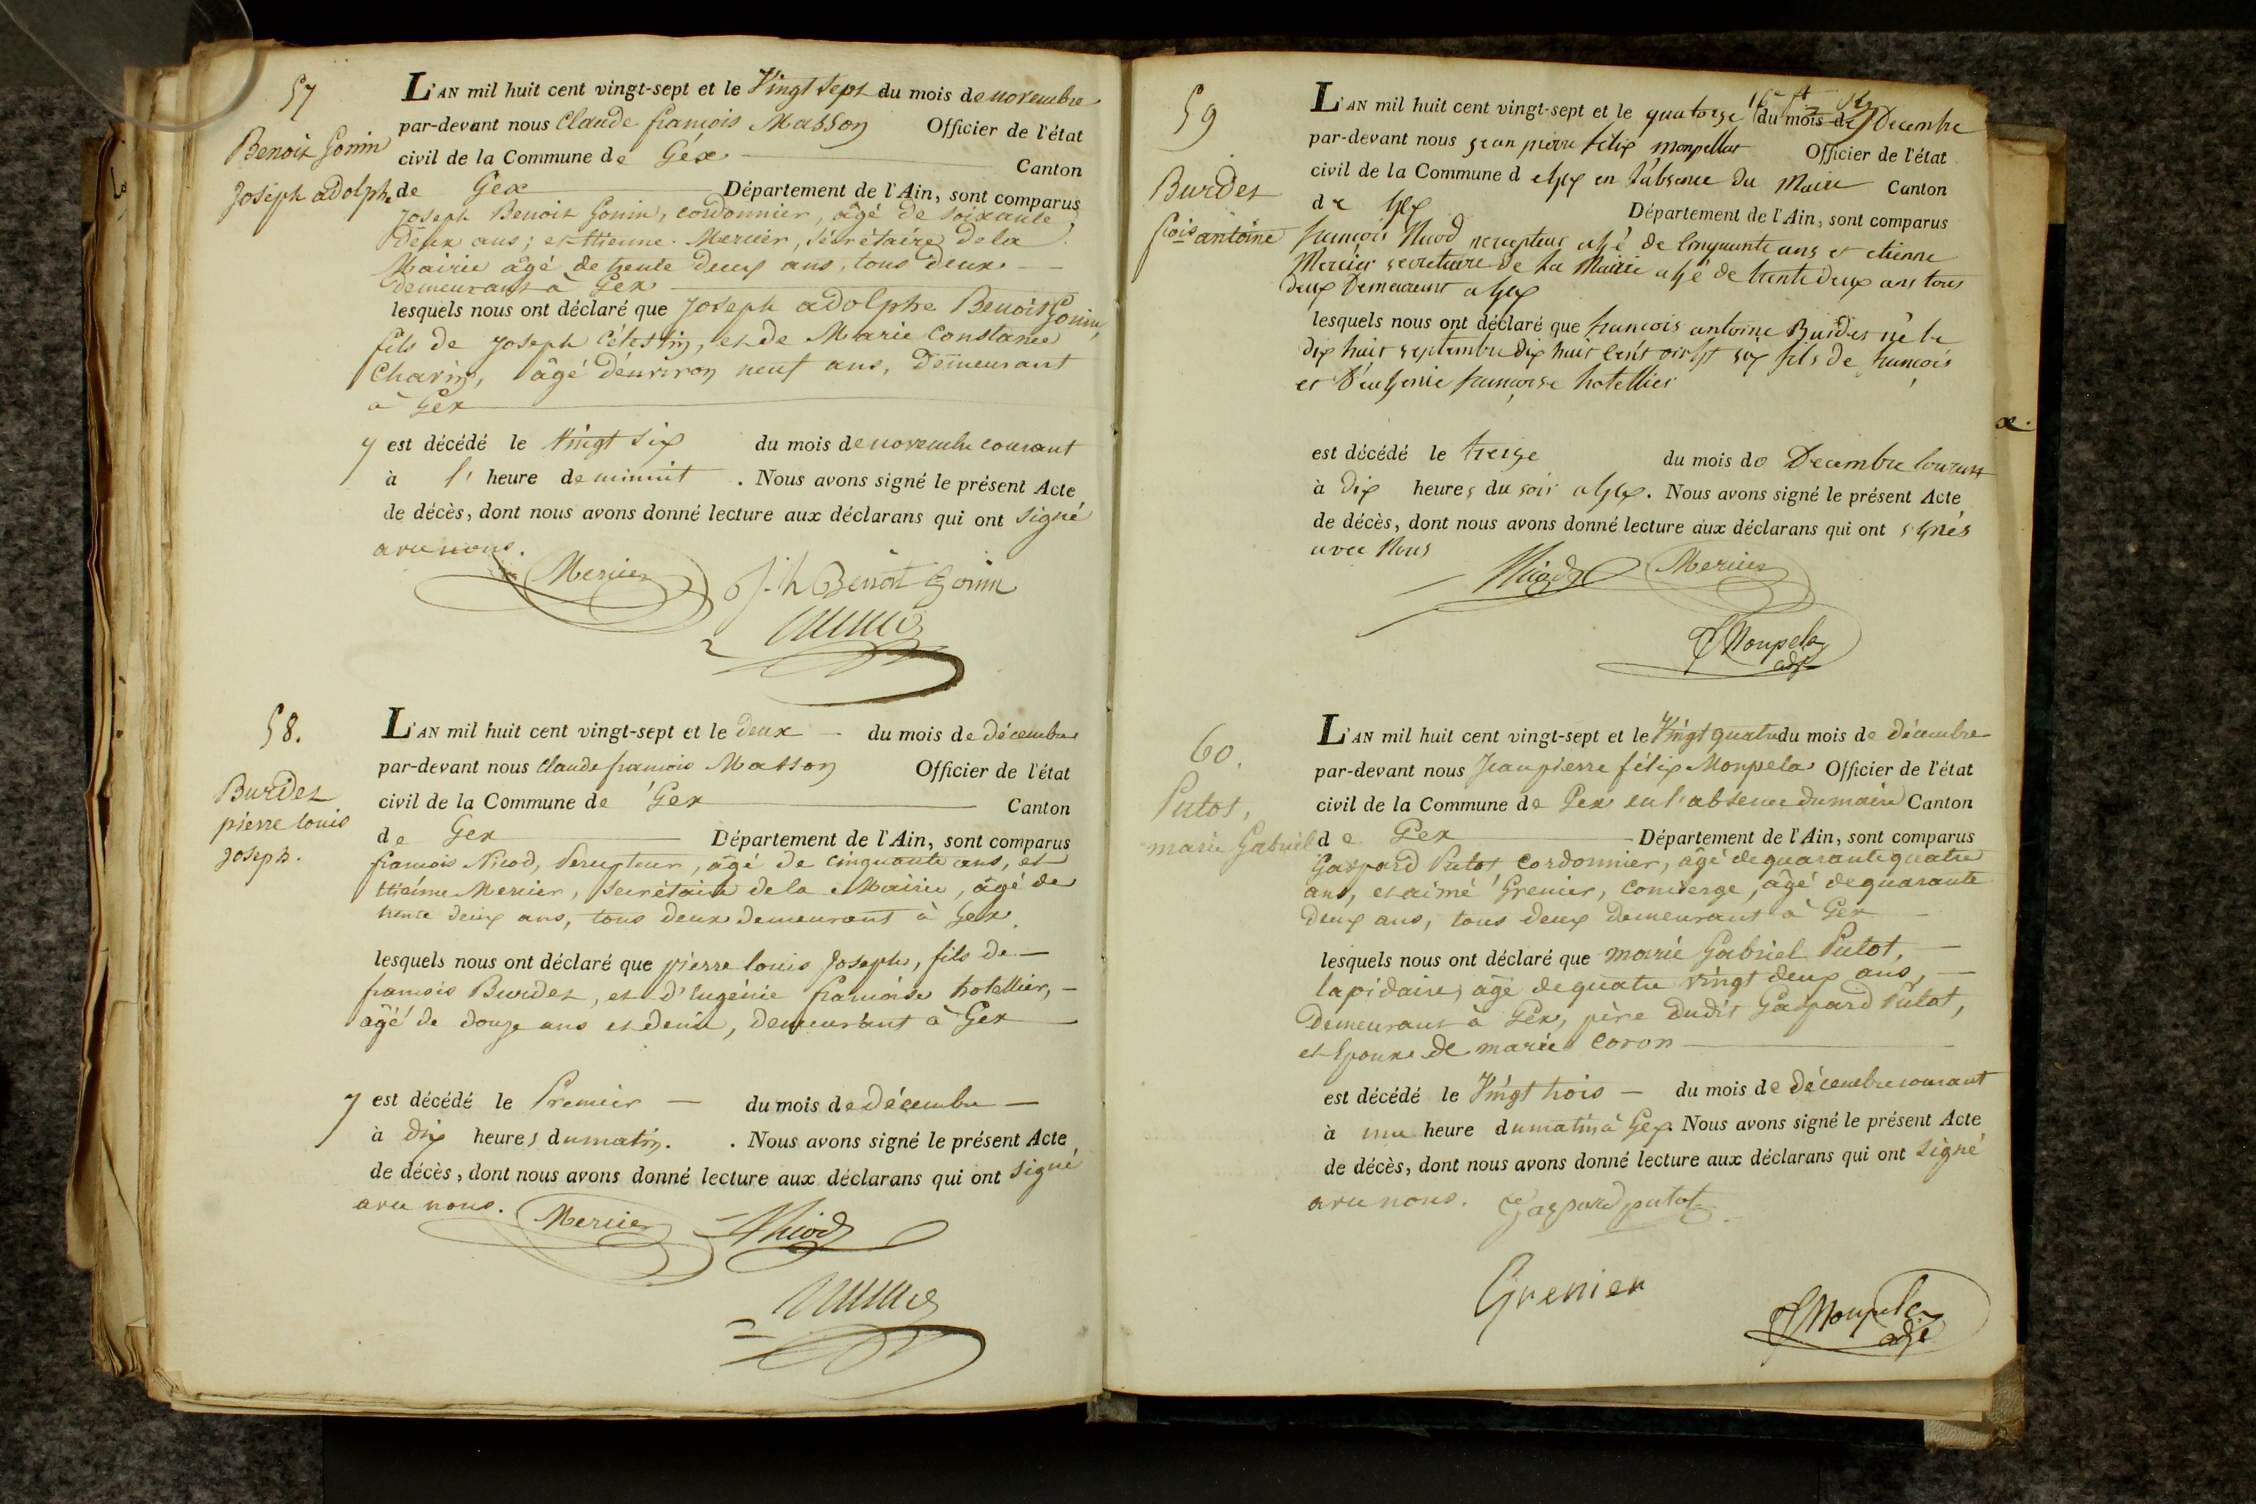 57
Benoit Gonin
Joseph adolphe
L'AN mil huit cent vingt-sept et le Vingt sept du mois de novembre
par-devant nous Claude françois Masson Officier de l'état
civil de la Commune de Gex Canton
de Gex Département de l'Ain, sont comparus
Joseph Benoit Gonin, cordonnier, âgé de soixante
deux ans; et Etienne Mercier, sécrétaire de la
Mairie âgé de trente deux ans, tous deux
demeurant à Gex
lesquels nous ont déclaré que Joseph adolphe Benoit Gonin,
fils de Joseph Célestin, et de Marie Constance
Charin, âgé d'environ neuf ans, demeurant
à Gex
y est décédé le Vingt six du mois de novembre courant
à l' heure de minuit . Nous avons signé le présent Acte
de décès, dont nous avons donné lecture aux déclarans qui ont signé
avec nous.
Mercier
Jh Benoit Gonin
58.
Burdet
pierre louis
Joseph.
L'AN mil huit cent vingt-sept et le deux du mois de décembre
par-devant nous Claude françois Masson Officier de l'état
civil de la Commune de Gex Canton
de Gex Département de l'Ain, sont comparus
françois Nicod, Percepteur, âgé de cinquante ans, et
Etienne Mercier, secrétaire de la Mairie, âgé de
trente deux ans, tous deux demeurant à Gex.
lesquels nous ont déclaré que pierre louis Joseph, fils de
françois Burdet, et d'Eugénie françoise hotellier,
âgé de douze ans et demi, demeurant à Gex
y est décédé le Premier du mois de décembre
à dix heures du matin. . Nous avons signé le présent Acte
de décès, dont nous avons donné lecture aux déclarans qui ont signé
avec nous.
Mercier
Nicod
59
Burdet
fçois antoine
L'AN mil huit cent vingt-sept et le quatorze du mois de Decembre
par-devant nous jean pierre félix monpellat Officier de l'état
civil de la Commune d e Gex en l'absence du Maire Canton
de Gex Département de l'Ain, sont comparus
françois Nicod percepteur agé de Cinquante ans et etienne
Mercier secretaire de la Mairie agé de trente deux ans tous
deux Demeurant a Gex
lesquels nous ont déclaré que francois antoine Burdet né le
dix huit septembre dix huit Cent vingt six fils de françois
et D'eugenie françoise hotellier
est décédé le treize du mois de Decembre Courant
à dix heures du soir a Gex. Nous avons signé le présent Acte
de décès, dont nous avons donné lecture aux déclarans qui ont signés
avec Nous
Nicod
Mercier
Monpela
adjt
60.
Putot,
marie Gabriel
L'AN mil huit cent vingt-sept et le Vingt quatre du mois de décembre
par-devant nous Jean pierre félix Monpela Officier de l'état
civil de la Commune de Gex en l'absence du maire Canton
de Gex Département de l'Ain, sont comparus
Gaspard Putot Cordonnier, âgé de quarante quatre
ans, et aimé Grenier, Concierge, âgé de quarante
deux ans, tous deux demeurant à Gex
lesquels nous ont déclaré que marie Gabriel Putot,
lapidaire, âgé de quatre vingt deux ans,
Demeurant à Gex, père dudit Gaspard Putot,
et Epoux de marie Coron
est décédé le Vingt trois du mois de décembre courant
à une heure du matin à Gex. Nous avons signé le présent Acte
de décès, dont nous avons donné lecture aux déclarans qui ont signé
avec nous.
Gaspard putot
Grenier
Monpela
adjt